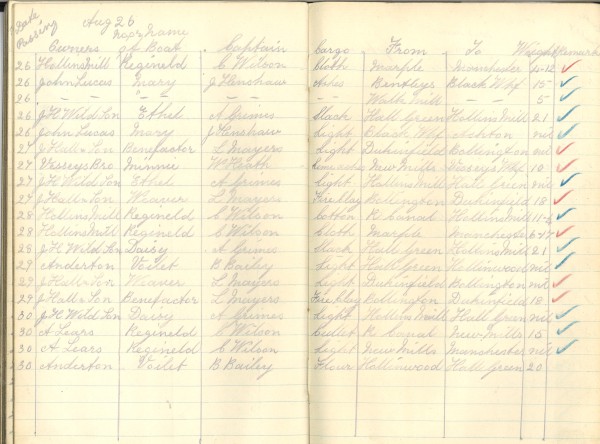 Date Passing Aug 26
No or Name
Owners of Boat Captain Cargo From To Weight Remarks
26 Hollins Mill Regineld C Wilson Cloth Marple Manchester
26 John Lucas Mary J Henshaw Ashes Bentleys Black Whf 15
26 - - - - - - - - Walk Mill - - 5
26 J H Wild & Son Ethel A Grimes Slack Hall Green Hollins Mill 21
26 John Lucas Mary J Henshaw Light Black Whf Ashton nil
27 J Hall & Son Benefactor L Mayers Light Dukinfield Bollington nil
27 Vesseys Bro Minnie W Heath New Mills Vesseys Whf 10
27 J H Wild Son Ethel A Grimes Light Hollins Mill Hall Green nil
27 J Hall & Son Weaver L Mayers Fireclay Bollington Dukenfield 18
28 Hollins Mill Regineld C Wilson Cotton R Canal Hollins Mill
28 Hollins Mill Regineld C Wilson Cloth Marple Manchester 6-17
28 J H Wild & Son Daisy A Grimes Slack Hall Green Hollins Mill 21
29 Anderton Voilet B Bailey Light Hall Green Hollinwood nil
29 J Hall & Son Weaver L Mayers Light Dukinfield Bollington nil
29 J Hall & Son Benefactor L Mayers Fireclay Bollington Dukenfield 18
30 J H Wild Son Daisy A Grimes Light Hollins Mill Hall Green nil
30 A Lears Regineld C Wilson Cullet R Canal New Mills 15
30 A Lears Regineld C Wilson Light New Mills Manchester nil
30 Anderton Voilet B Bailey Flour Hollinwood Hall Green 20